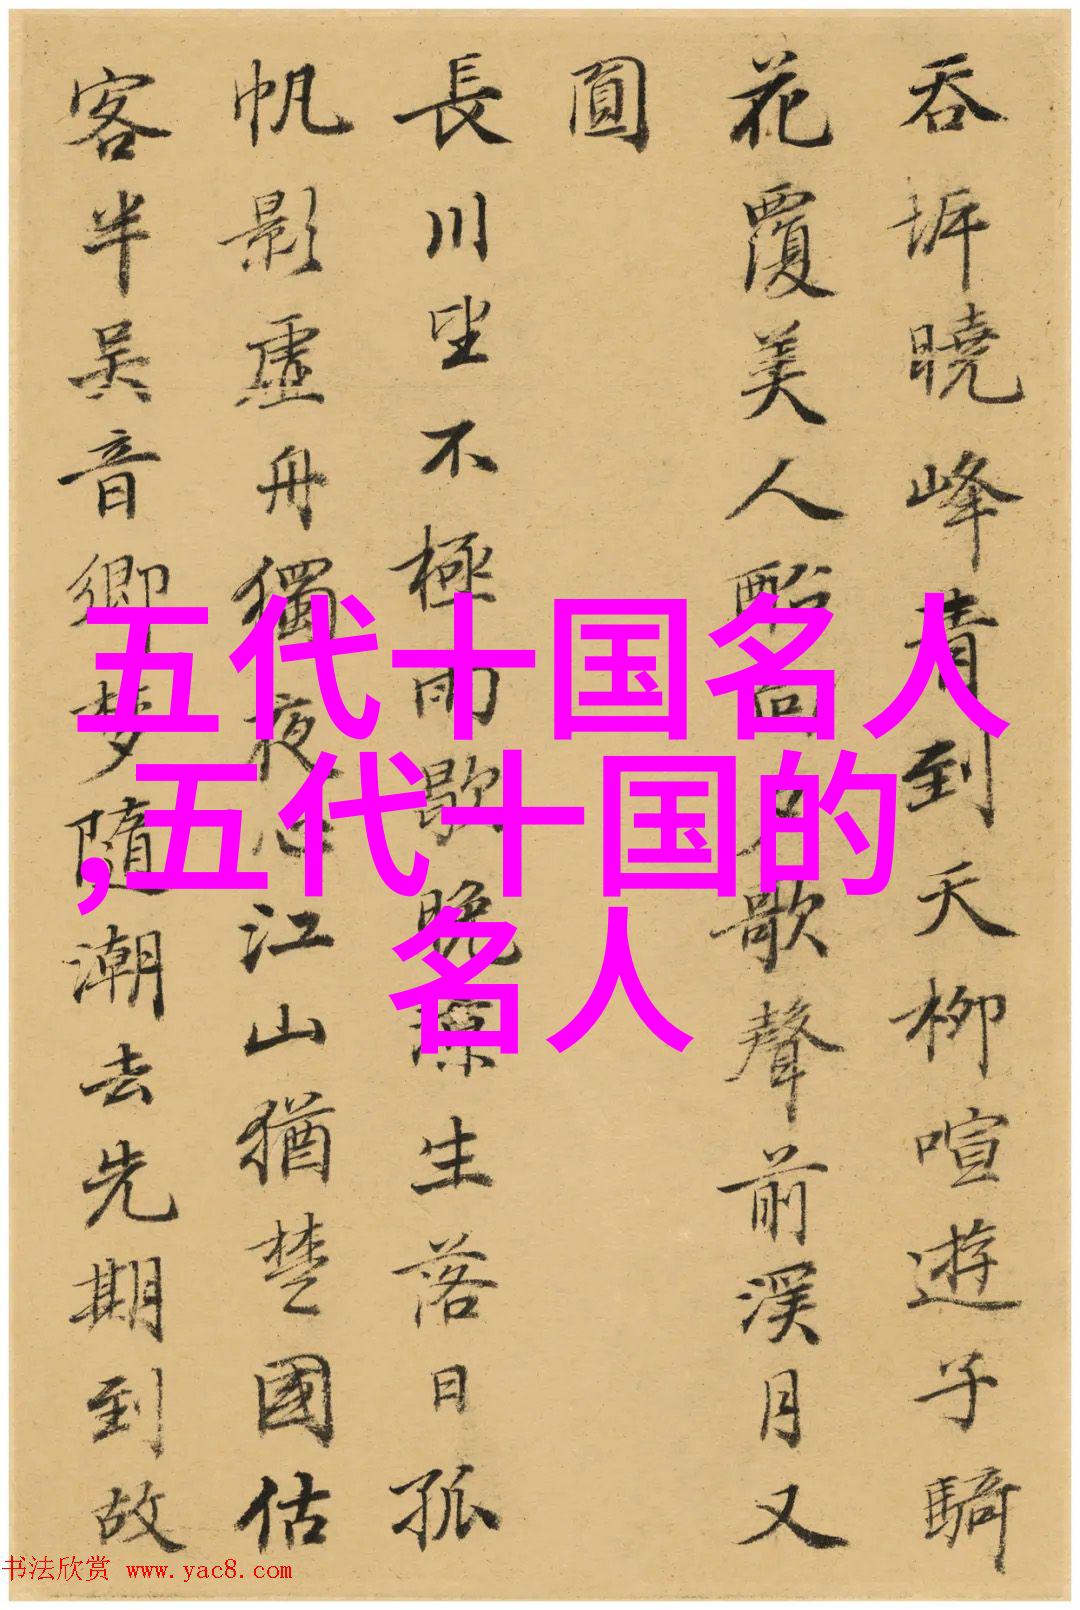 吞坼曉峰青到天柳喧遊子騎
花覆美人回歌聲前溪月又
圓
長川坐不極雨歇晚涼生落日孤
帆影虛舟獨夜心江山猶楚國估
客半吳音鄉夢隨潮去先期到故
五代十国名人
,五代十国的
名人
书法欣赏 www.yac8.com